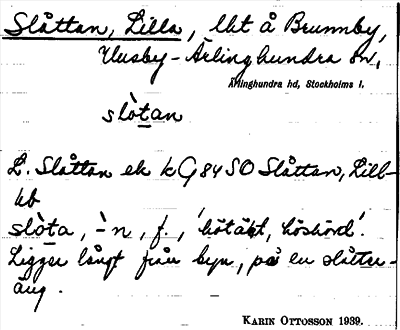 Slåttan, Lilla, lht å Brunnby,
Husby-Ärlinghundra sn,
Ärlinghundra hd, Stockholms l.
slòtan
L. Slåttan ek kG 84 SO Slåttan, Lill-
hb
slòta, -̀n, f., 'hötäkt, höskörd'.
Ligger långt från byn, på en slåtter-
äng.
KARIN OTTOSSON 1939.